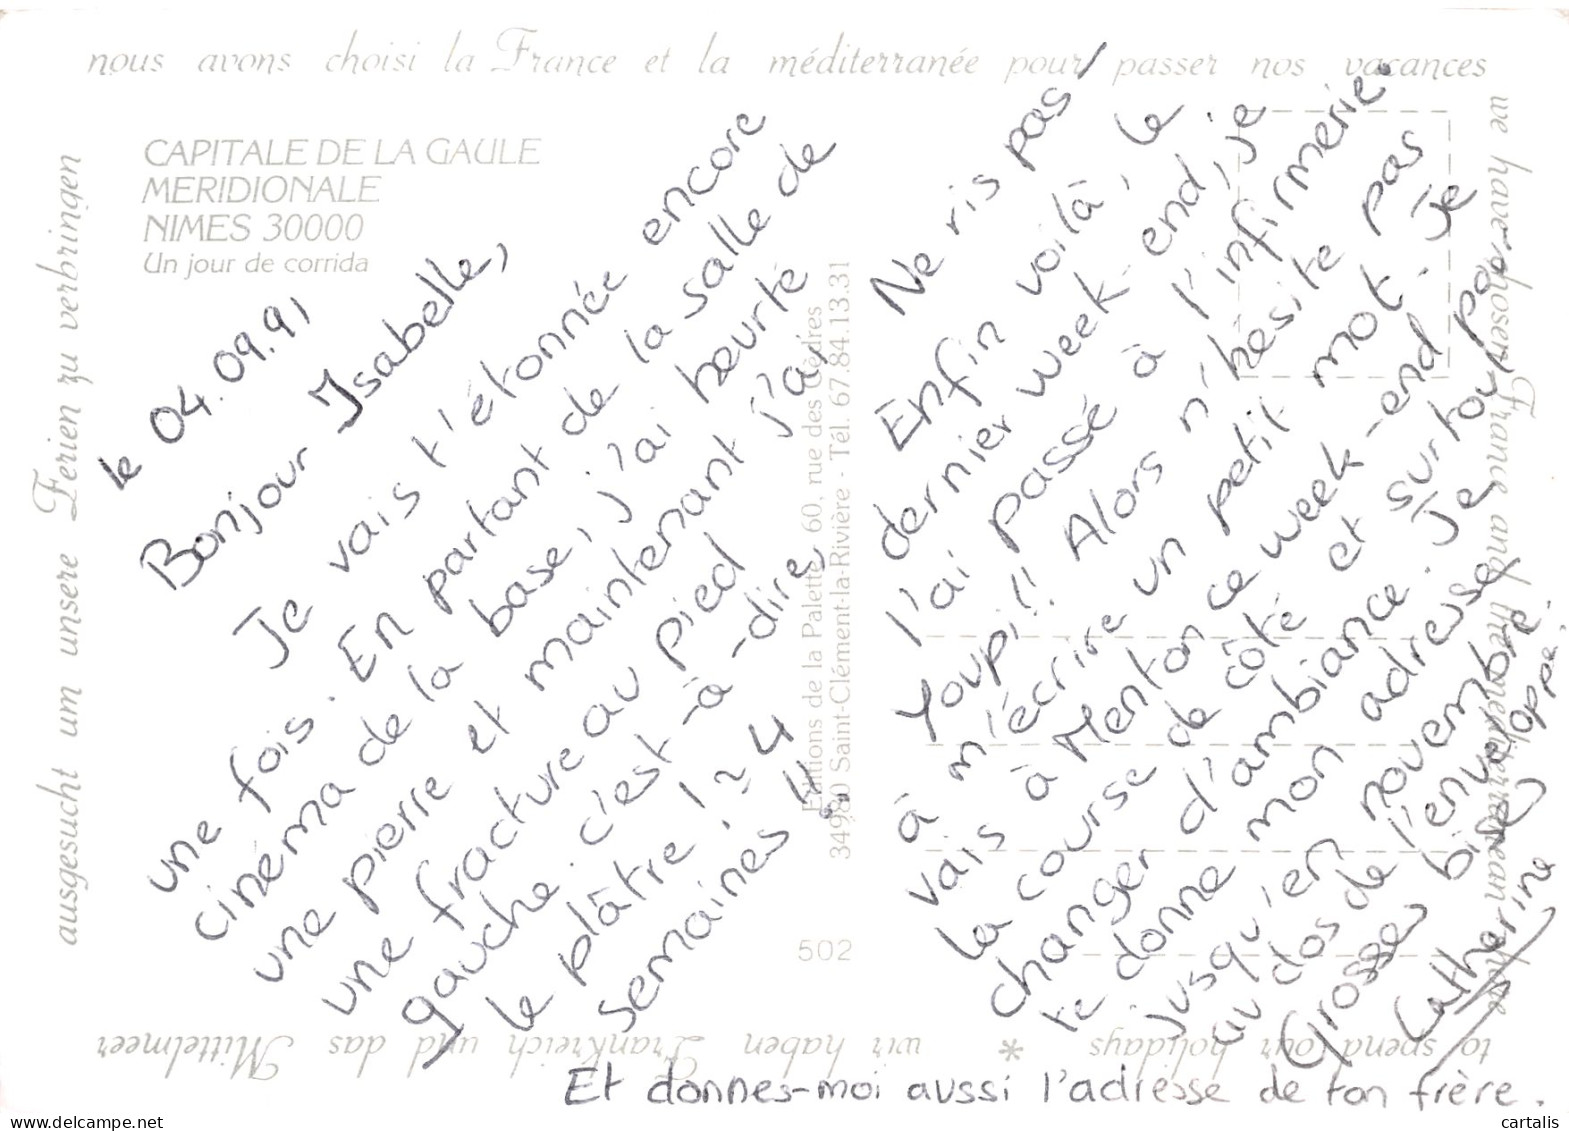 nous avons choisi la France et la méditerranée pour passer nos vacances
CAPITALE DE LA GAULE
MERIDIONALE
NIMES 30000
Un jour de corrida
le 04.09.91
Bonjour Isabelle,
Je vais t'étonnée encore
une fois. En partant de la salle de
cinéma de la base, j'ai heurté
une pierre et maintenant j'ai
une fracture au pied
gauche, c'est-à-dire
le plâtre ! ~ 4
semaines !!
Ne ris pas !
Enfin voilà, le
dernier week-end, je
l'ai passé à l'infirmerie.
Youpi!! Alors n'hésite pas
à m'écrire un petit mot. Je
vais à Menton ce week-end pour
la course de côté et surtout
changer d'ambiance. Je
te donne mon adresse
jusqu'en novembre
au dos de l'enveloppe.
Grosses bises
Catherine
Et donnes-moi aussi l'adresse de ton frère.
Editions de la Palette 60, rue des Cèdres
34980 Saint-Clément-la-Rivière - Tél. 67.84.13.31
502
we have chosen France and the mediterranean shore
to spend our holidays * wir haben Frankreich und das Mittelmeer
ausgesucht um unsere Ferien zu verbringen
cartalis
delcampe.net